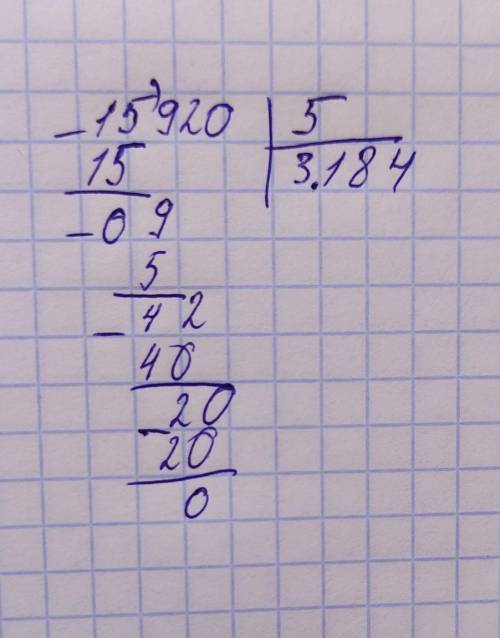 - 15 920 | 5
15 | 3.184
- 0 9
5
- 42
40
- 20
20
0